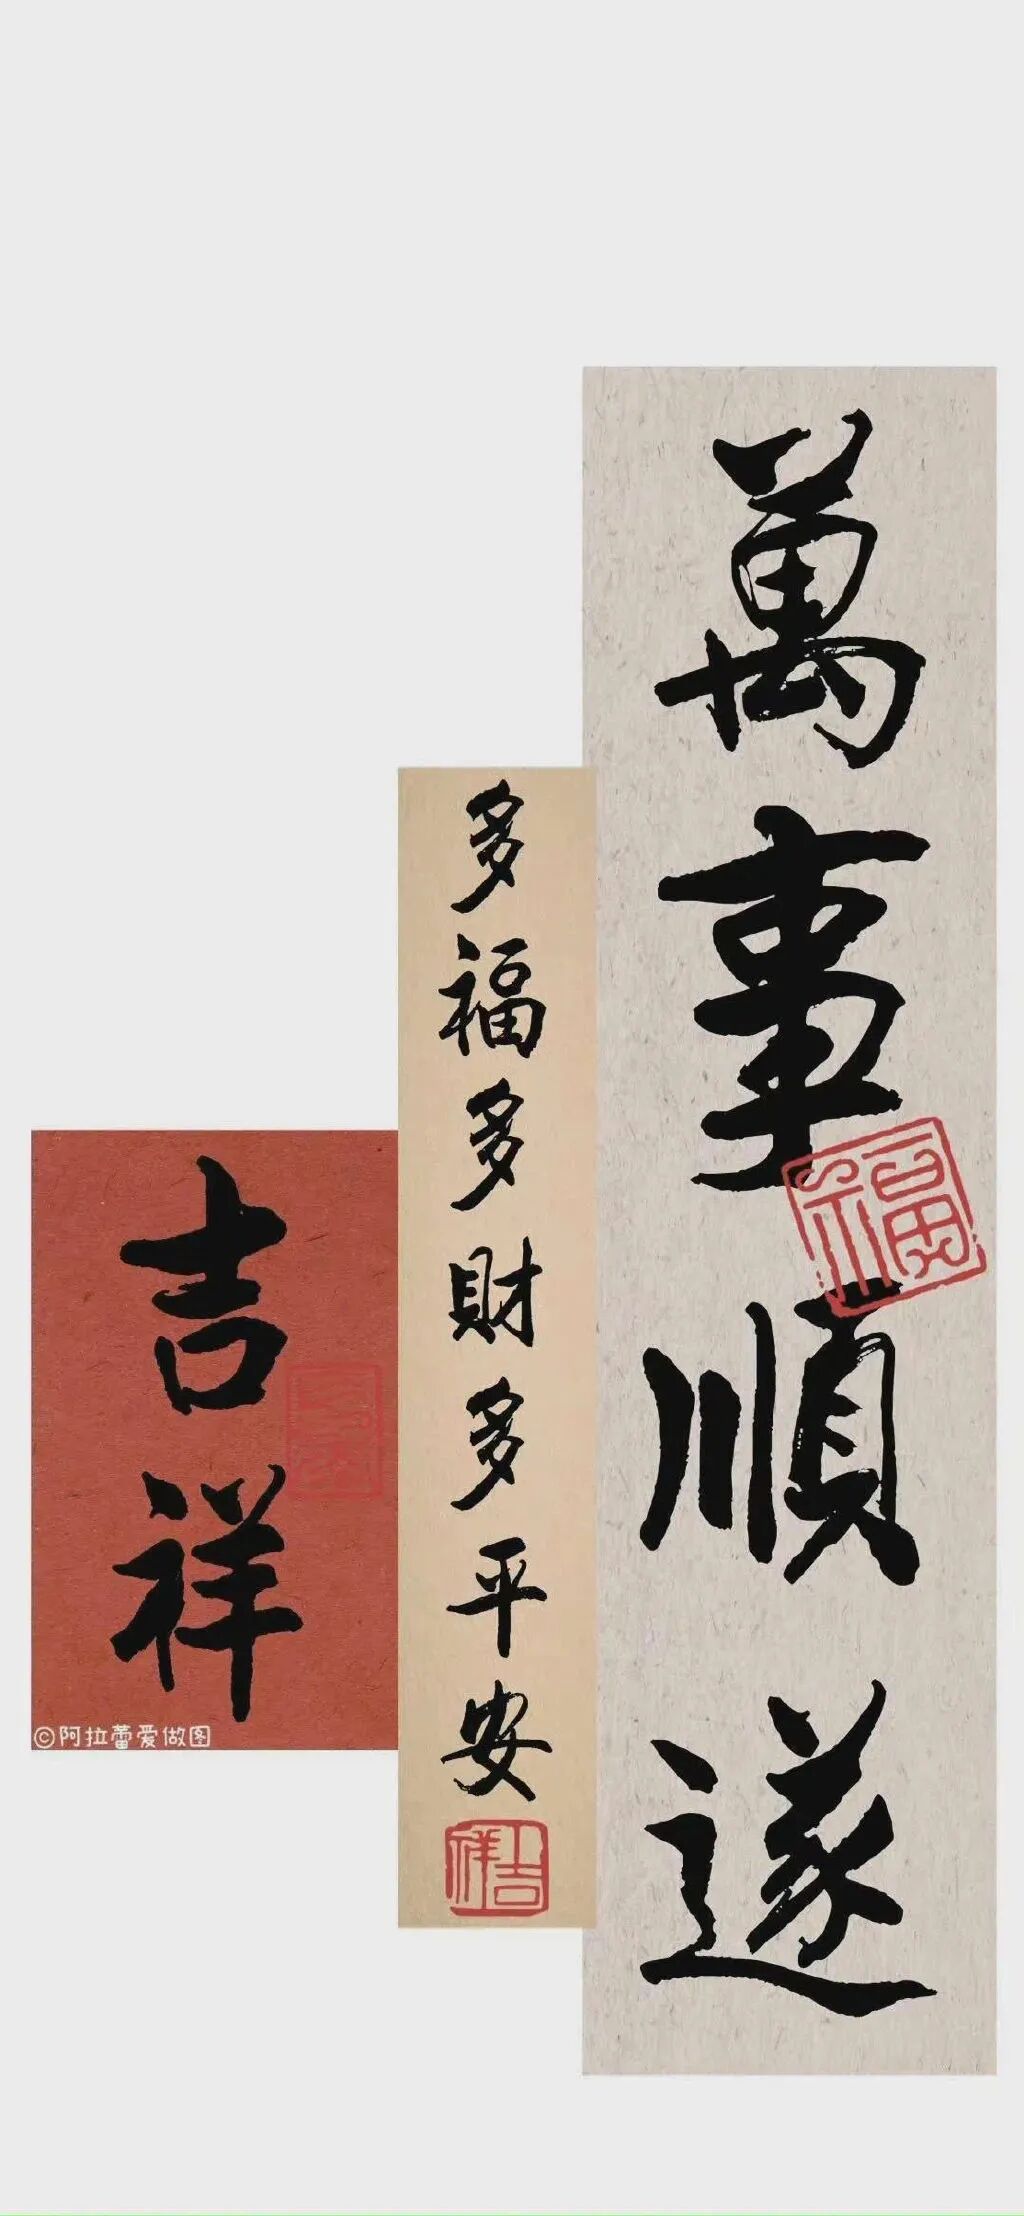 萬事順遂
福
多福多財多平安
吉祥
吉祥
©阿拉蕾爱做图